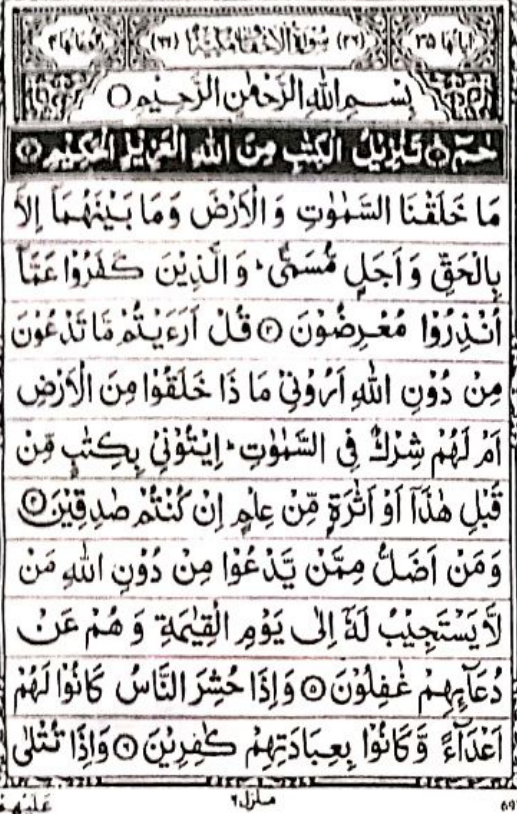 اٰیاتها ۳۵ (۴۶) سُوْرَةُ الْاَحْقَافِ مَكِّيَّةٌ (۶۶) رکوعاتها ۴
بِسْمِ اللّٰهِ الرَّحْمٰنِ الرَّحِيْمِ ○
حٰمٓ ۚ﴿۱﴾ تَنْزِيْلُ الْكِتٰبِ مِنَ اللّٰهِ الْعَزِيْزِ الْحَكِيْمِ ﴿۲﴾
مَا خَلَقْنَا السَّمٰوٰتِ وَ الْاَرْضَ وَ مَا بَيْنَهُمَاۤ اِلَّا
بِالْحَقِّ وَ اَجَلٍ مُّسَمًّى ؕ وَ الَّذِيْنَ كَفَرُوْا عَمَّاۤ
اُنْذِرُوْا مُعْرِضُوْنَ ﴿۳﴾ قُلْ اَرَءَيْتُمْ مَّا تَدْعُوْنَ
مِنْ دُوْنِ اللّٰهِ اَرُوْنِيْ مَا ذَا خَلَقُوْا مِنَ الْاَرْضِ
اَمْ لَهُمْ شِرْكٌ فِي السَّمٰوٰتِ ؕ اِيْتُوْنِيْ بِكِتٰبٍ مِّنْ
قَبْلِ هٰذَاۤ اَوْ اَثٰرَةٍ مِّنْ عِلْمٍ اِنْ كُنْتُمْ صٰدِقِيْنَ ﴿۴﴾
وَ مَنْ اَضَلُّ مِمَّنْ يَّدْعُوْا مِنْ دُوْنِ اللّٰهِ مَنْ
لَّا يَسْتَجِيْبُ لَهٗۤ اِلٰى يَوْمِ الْقِيٰمَةِ وَ هُمْ عَنْ
دُعَآىِٕهِمْ غٰفِلُوْنَ ﴿۵﴾ وَ اِذَا حُشِرَ النَّاسُ كَانُوْا لَهُمْ
اَعْدَآءً وَّ كَانُوْا بِعِبَادَتِهِمْ كٰفِرِيْنَ ﴿۶﴾ وَ اِذَا تُتْلٰى
منزل ۶
عَلَيْهِمْ